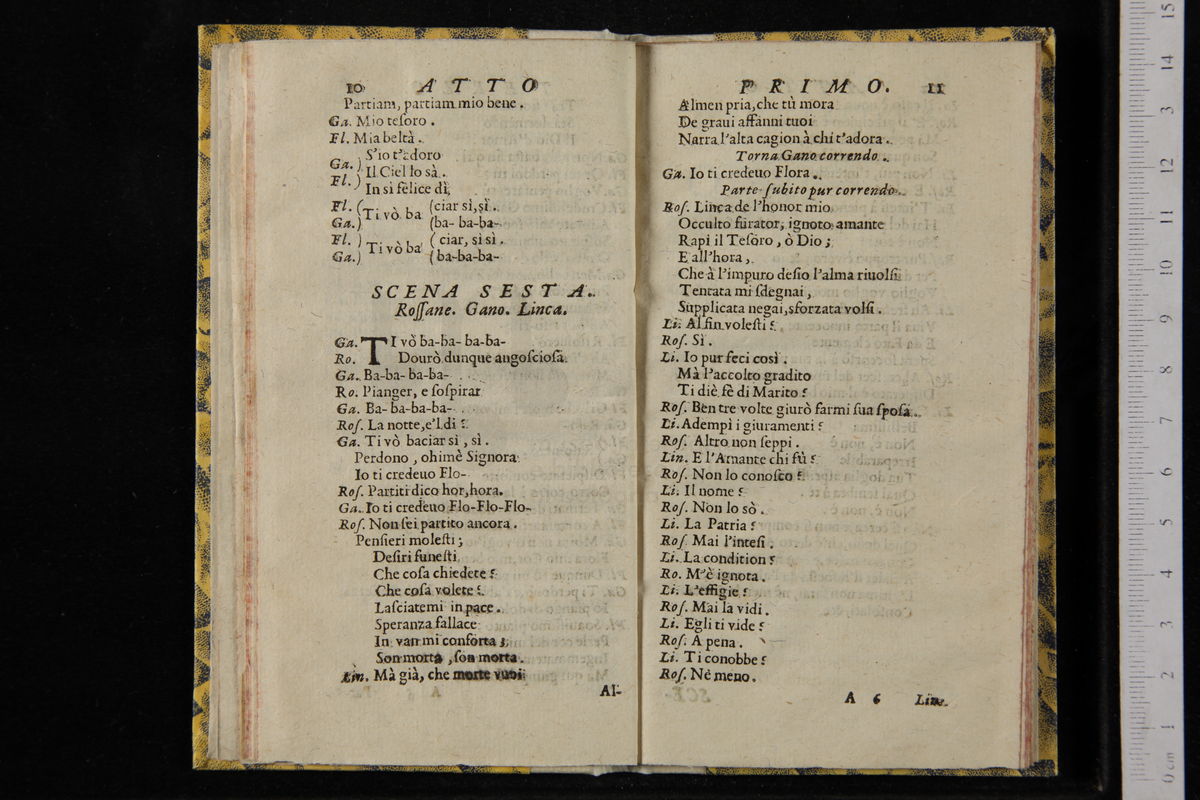 10 ATTO
Partiam, partiam mio bene.
Ga. Mio teſoro.
Fl. Mia beltà.
Ga. ) S'io t'adoro
Fl. ) Il Ciel lo sà.
In sì felice dì,
Fl. ( Ti vò ba (ciar sì, sì.
Ga. ) (ba- ba-ba-
Fl. ) Ti vò ba ( ciar, sì sì.
Ga. ) ( ba-ba-ba-
SCENA SESTA.
Roſſane. Gano. Linca.
Ga. TI vò ba-ba- ba-ba-
Ro. Dourò dunque angoſcioſa.
Ga. Ba-ba- ba-ba-
Ro. Pianger, e ſoſpirar
Ga. Ba- ba-ba-ba-
Roſ. La notte, e'l dì?
Ga. Ti vò baciar sì, sì.
Perdono, ohimè Signora
Io ti credeuo Flo-
Roſ. Partiti dico hor, hora.
Ga. Io ti credeuo Flo-Flo-Flo-
Roſ. Non ſei partito ancora.
Penſieri moleſti;
Deſiri funeſti,
Che coſa chiedete?
Che coſa volete?
Laſciatemi in pace.
Speranza fallace
In van mi conforta;
Son morta, ſon morta.
Lin. Mà già, che morte vuoi
Al-
PRIMO. 11
Almen pria, che tù mora
De graui affanni tuoi
Narra l'alta cagion à chi t'adora.
Torna Gano correndo.
Ga. Io ti credeuo Flora.
Parte ſubito pur correndo.
Roſ. Linca de l'honor mio
Occulto furator, ignoto amante
Rapì il Teſoro, ò Dio;
E all'hora,
Che à l'impuro deſio l'alma riuolſi
Tentata mi ſdegnai,
Supplicata negai, sforzata volſi.
Li. Al fin voleſti?
Roſ. Sì.
Li. Io pur feci così.
Mà l'accolto gradito
Ti diè fè di Marito?
Roſ. Ben tre volte giurò farmi ſua ſpoſa.
Li. Adempì i giuramenti?
Roſ. Altro non ſeppi.
Lin. E l'Amante chi fù?
Roſ. Non lo conoſco?
Li. Il nome?
Roſ. Non lo sò.
Li. La Patria?
Roſ. Mai l'inteſi.
Li. La condition?
Ro. M'è ignota.
Li. L'effigie?
Roſ. Mai la vidi.
Li. Egli ti vide?
Roſ. A pena.
Li. Ti conobbe?
Roſ. Nè meno.
A 6 Lin.
15
14
13
12
11
10
9
8
7
6
5
4
3
2
1
0 cm